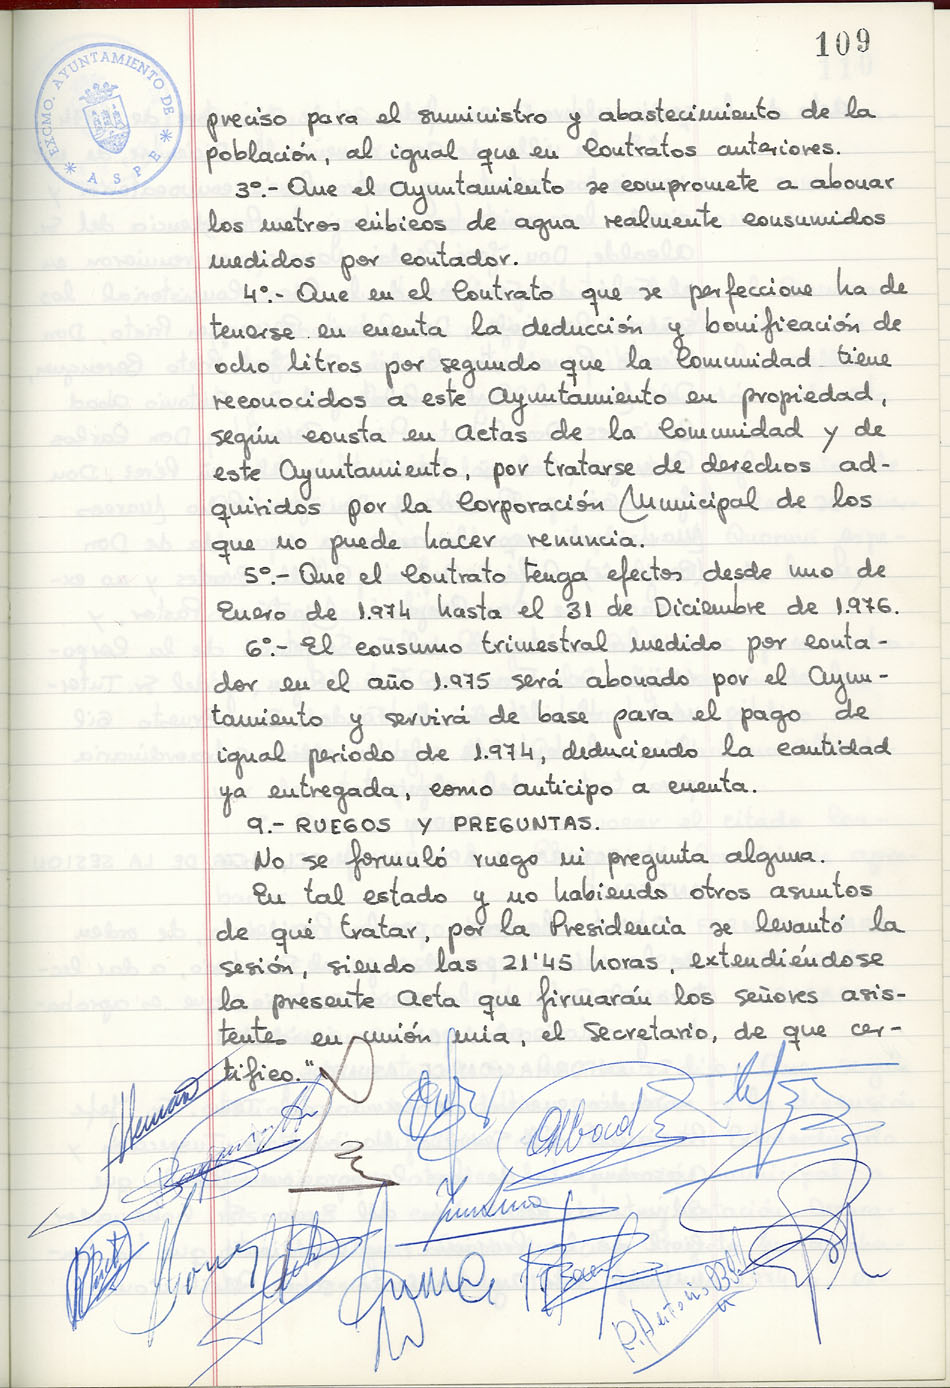 109
EXCMO. AYUNTAMIENTO DE
* ASPE *
preciso para el suministro y abastecimiento de la
población, al igual que en Contratos anteriores.
3º.- Que el Ayuntamiento se compromete a abonar
los metros cúbicos de agua realmente consumidos
medidos por contador.
4º.- Que en el Contrato que se perfeccione ha de
tenerse en cuenta la deducción y bonificación de
ocho litros por segundo que la Comunidad tiene
reconocidos a este Ayuntamiento en propiedad,
según consta en Actas de la Comunidad y de
este Ayuntamiento, por tratarse de derechos ad-
quiridos por la Corporación Municipal de los
que no puede hacer renuncia.
5º.- Que el Contrato tenga efectos desde uno de
Enero de 1.974 hasta el 31 de Diciembre de 1.976.
6º.- El consumo trimestral medido por conta-
dor en el año 1.975 será abonado por el Ayun-
tamiento y servirá de base para el pago de
igual período de 1.974, deduciendo la cantidad
ya entregada, como anticipo a cuenta.
9.- RUEGOS Y PREGUNTAS.
No se formuló ruego ni pregunta alguna.
En tal estado y no habiendo otros asuntos
de qué tratar, por la Presidencia se levantó la
sesión, siendo las 21'45 horas, extendiéndose
la presente Acta que firmarán los señores asis-
tentes en unión mia, el Secretario, de que cer-
tifico."
Abad
R. Antonio